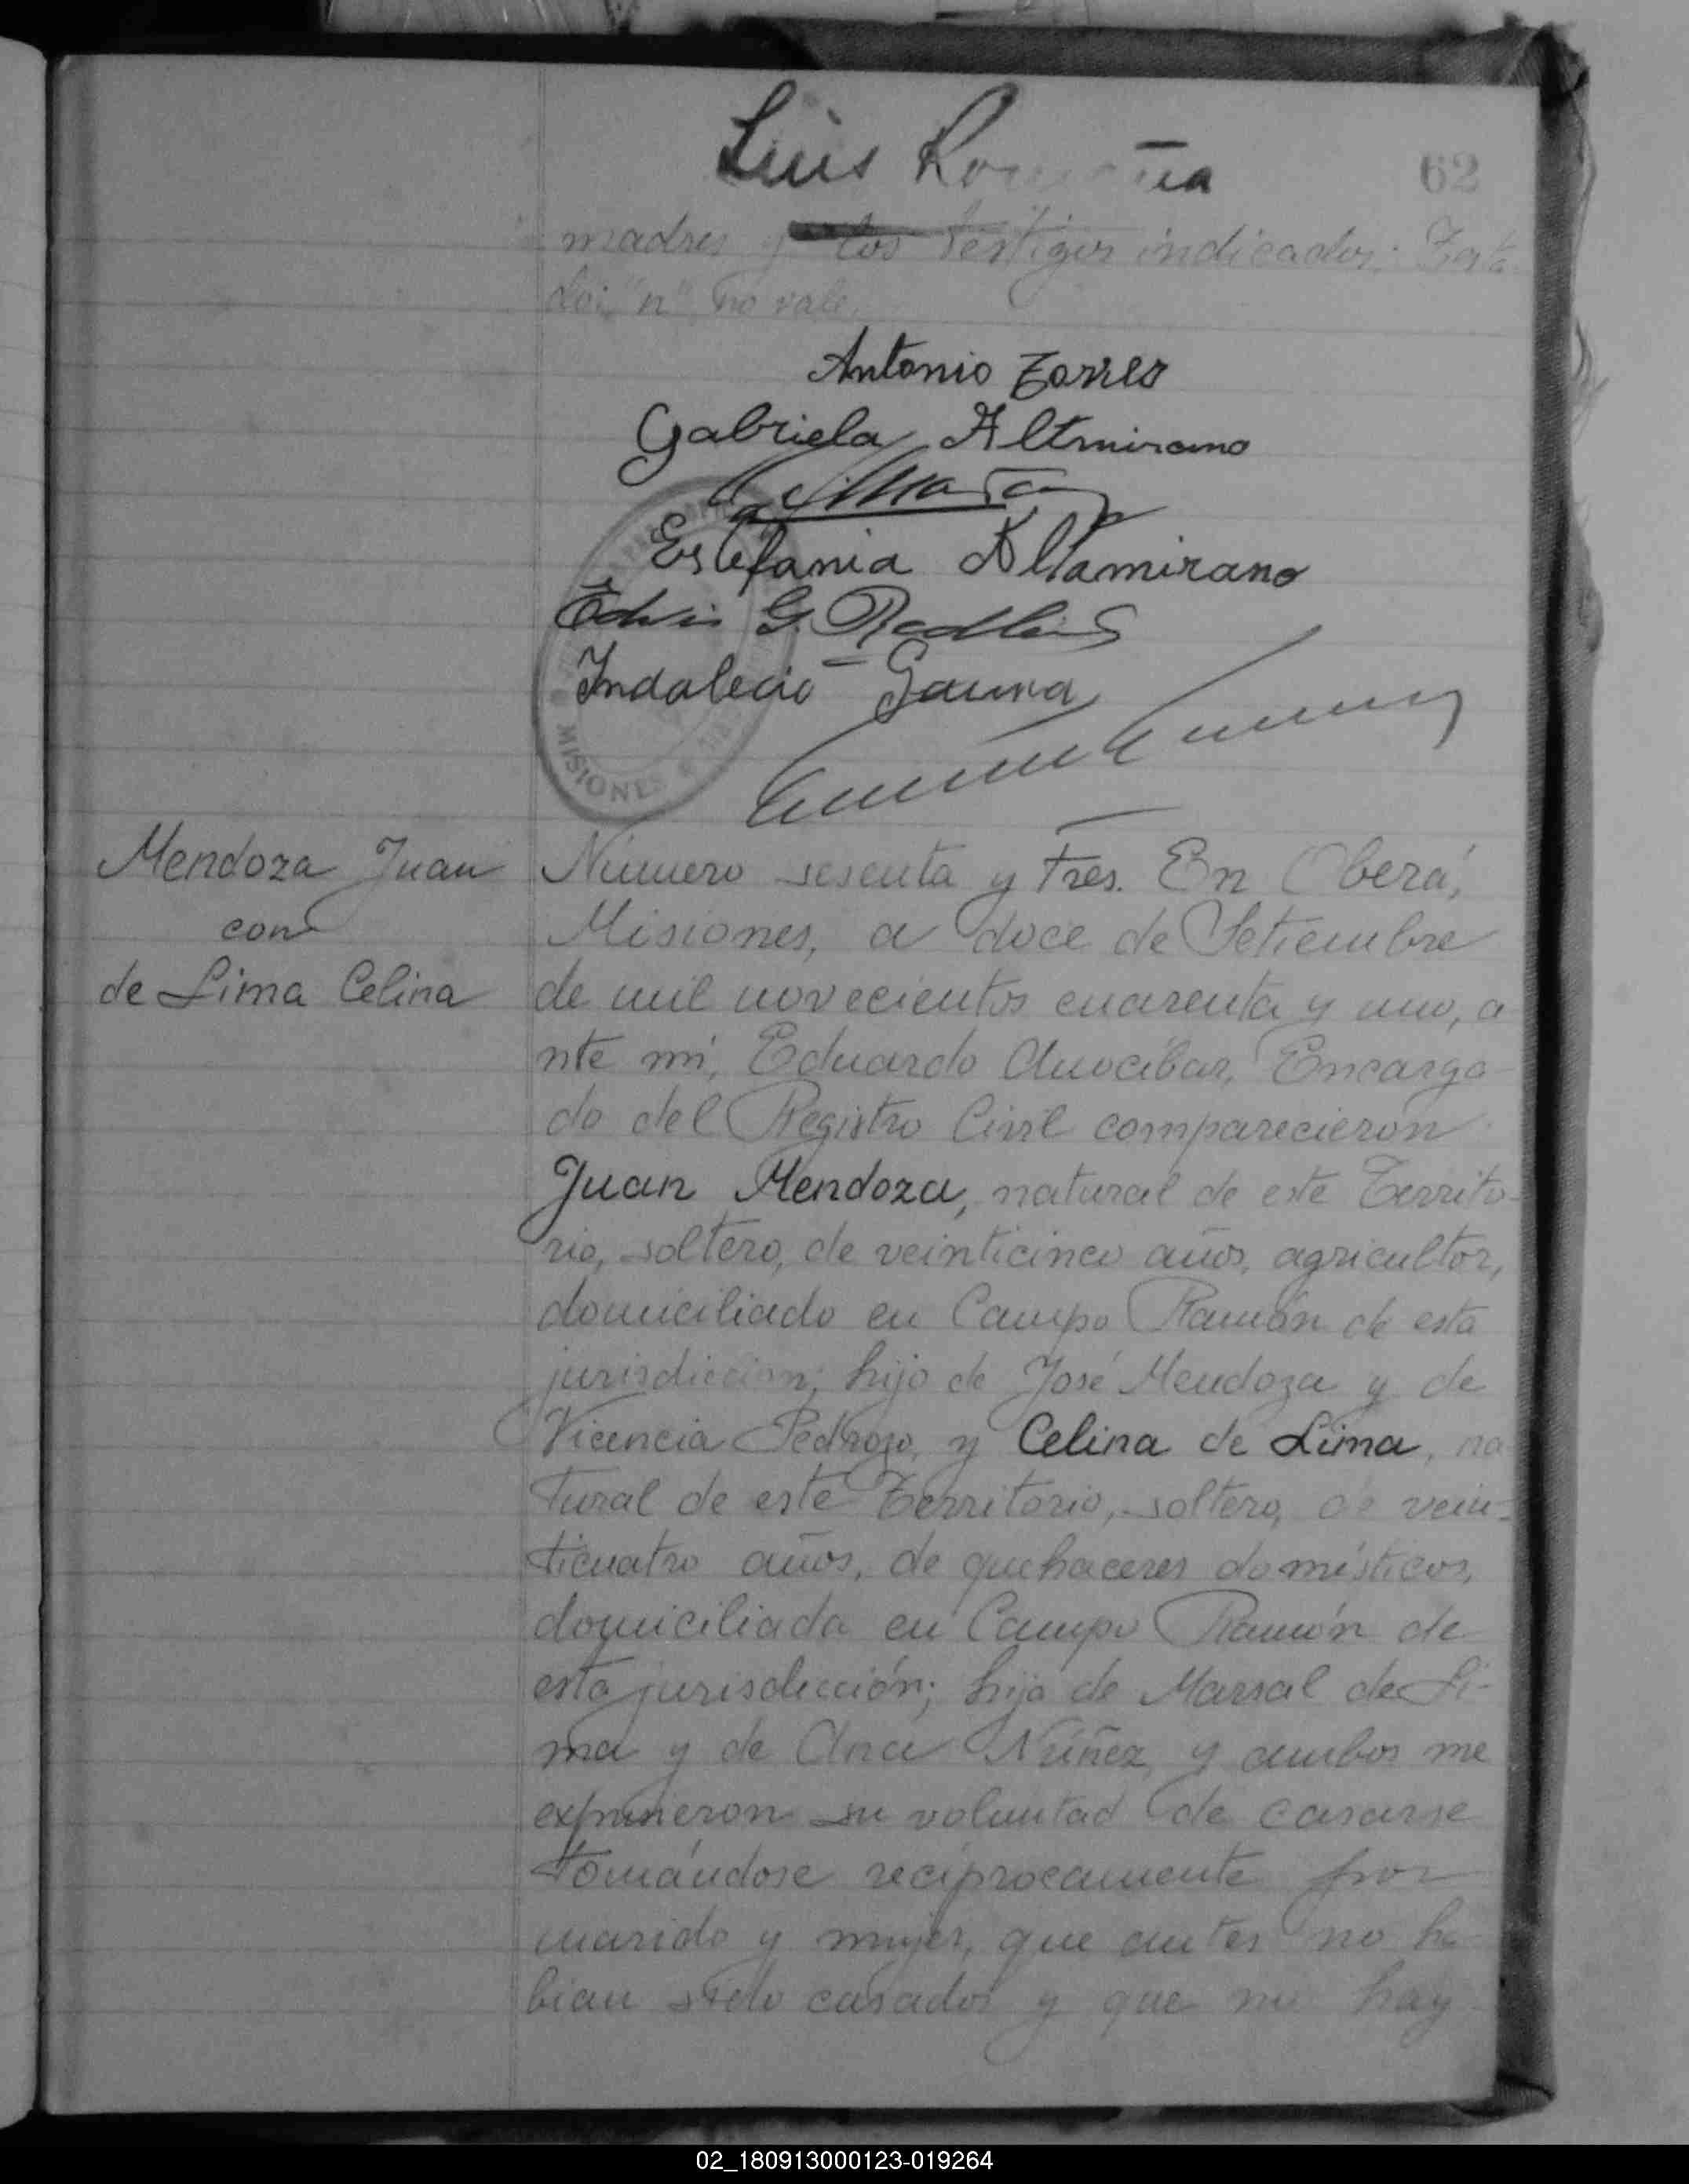 Luis
62
madres y los testigos indicados. Testa-
do: "n" no vale.
Antonio Torres
Gabriela Altmirano
Estefania Altamirano
Indalecio Gauna
MISIONES
Mendoza Juan
con
de Lima Celina
Número sesenta y tres. En Oberá,
Misiones, a doce de Setiembre
de mil novecientos cuarenta y uno, a
nte mí, Eduardo Auocibar, Encarga-
do del Registro Civil comparecieron
Juan Mendoza, natural de este Territo-
rio, soltero, de veinticinco años, agricultor,
domiciliado en Campo Ramón de esta
jurisdiccion; hijo de José Mendoza y de
Vicencia Pedrozo, y Celina de Lima, na
tural de este Territorio, soltera, de vein-
ticuatro años, de quehaceres domésticos,
domiciliada en Campo Ramón de
esta jurisdicción; hija de Marsal de Li-
ma y de Ana Núñez, y ambos me
expusieron su voluntad de casarse
tomándose reciprocamente por
marido y mujer, que antes no ha
bian sido casados y que no hay
02_180913000123-019264